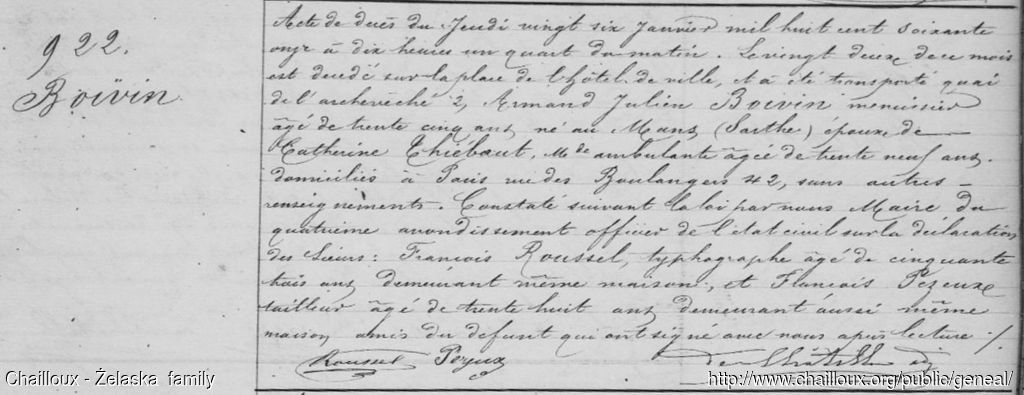 922.
Boivin
Acte de decès du Jeudi vingt six Janvier mil huit cent soixante
onze à dix heures un quart du matin. Le vingt deux de ce mois
est decedé sur la place de l'hôtel de ville, et a été transporté quai
de l'archevêché 2, Armand Julien Boivin menuisier
âgé de trente cinq ans né au Mans (Sarthe) époux de
Catherine Thiébaut, Mde ambulante âgée de trente neuf ans.
domiciliés à Paris rue des Boulangers 42, sans autres
renseignements. Constaté suivant la loi par nous Maire du
quatrième arrondissement officier de l'état civil sur la déclaration
des Sieurs : François Roussel, typhographe âgé de cinquante
trois ans demeurant même maison, et François Pezeux
tailleur âgé de trente huit ans demeurant aussi même
maison amis du defunt qui ont signé avec nous après lecture ./.
Roussel Pezeux
Chailloux - Želaska family
http://www.chailloux.org/public/geneal/